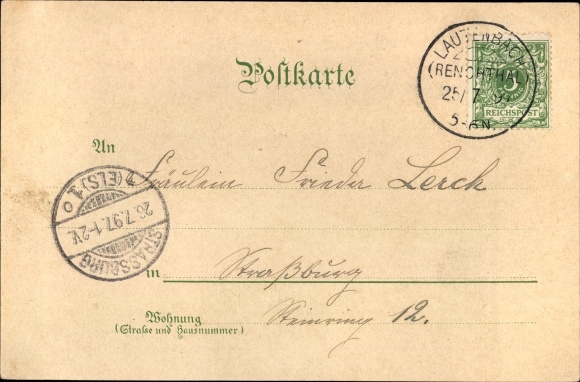 LAUTENBACH
(RENCHTHAL)
25/7 
5-6N.
5
REICHSPOST
Postkarte
An
Fräulein Frieda Lerck
STRASSBURG
(ELS) 1
26.7.97.1-2V.
in Straßburg
Wohnung
(Straße und Hausnummer)
Steinring 12.